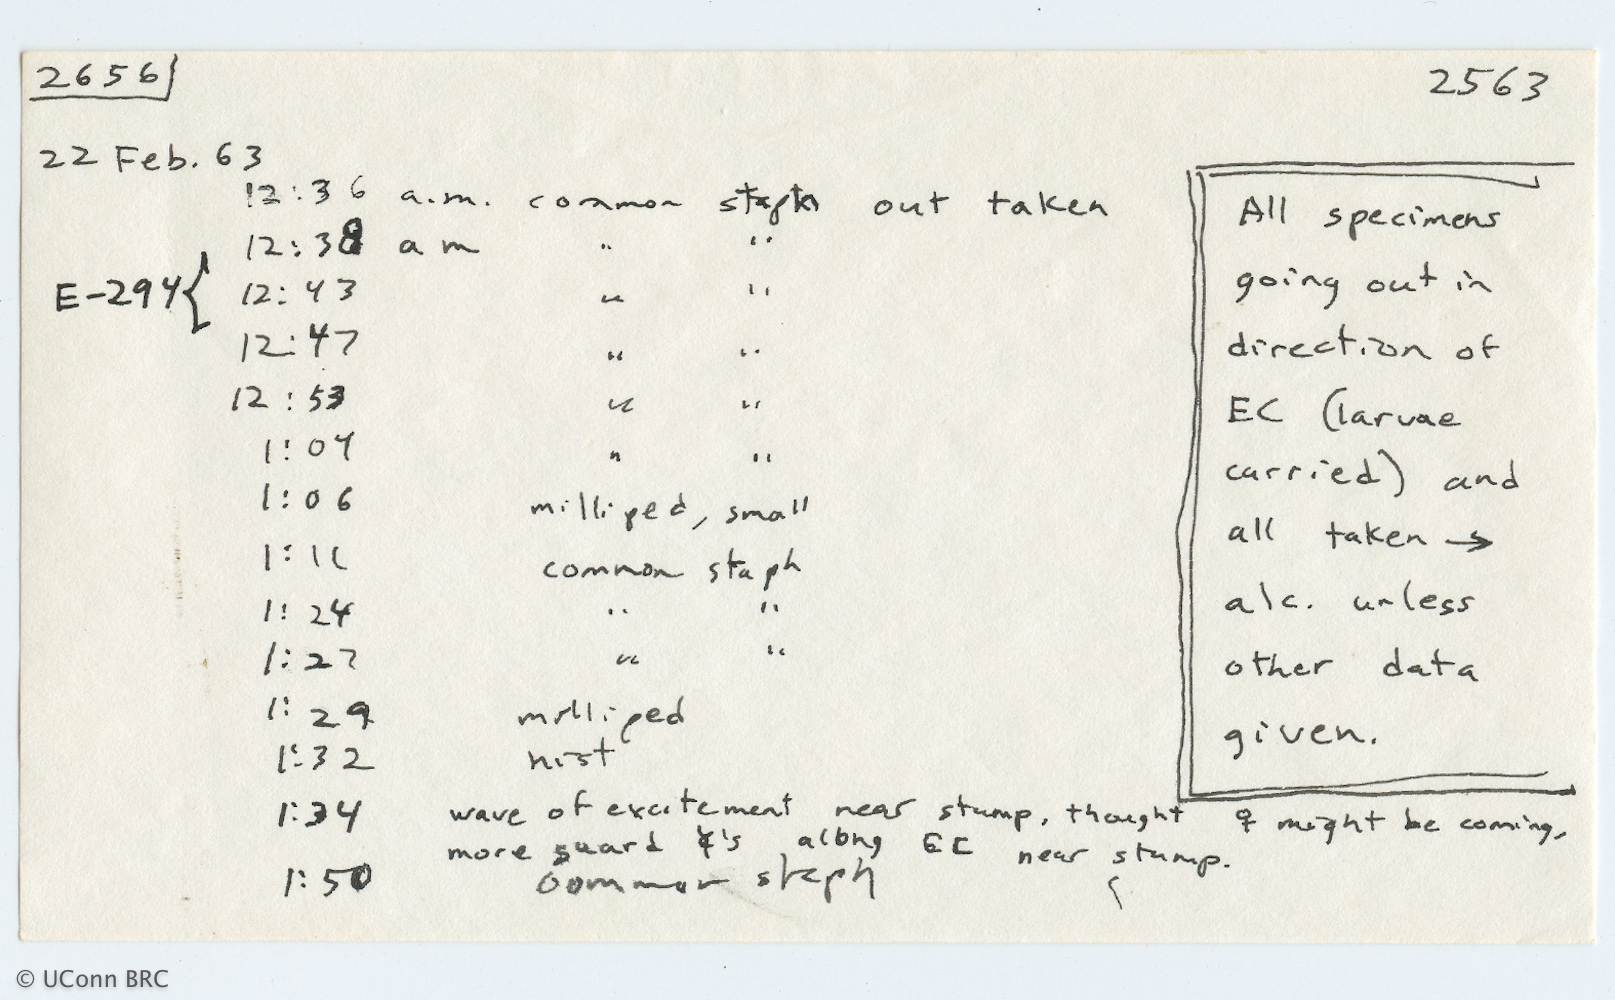 2656
2563
22 Feb. 63
12:36 a.m. common staph out taken
12:38 a m " "
E-294 { 12:43 " "
12:47 " "
12:53 " "
1:04 " "
1:06 milliped, small
1:11 common staph
1:24 " "
1:27 " "
1:29 milliped
1:32 hist
1:34 wave of excitement near stump, thought ♀ might be coming,
more guard ☿'s along EC near stump.
1:50 common staph
All specimens
going out in
direction of
EC (larvae
carried) and
all taken →
alc. unless
other data
given.
© UConn BRC